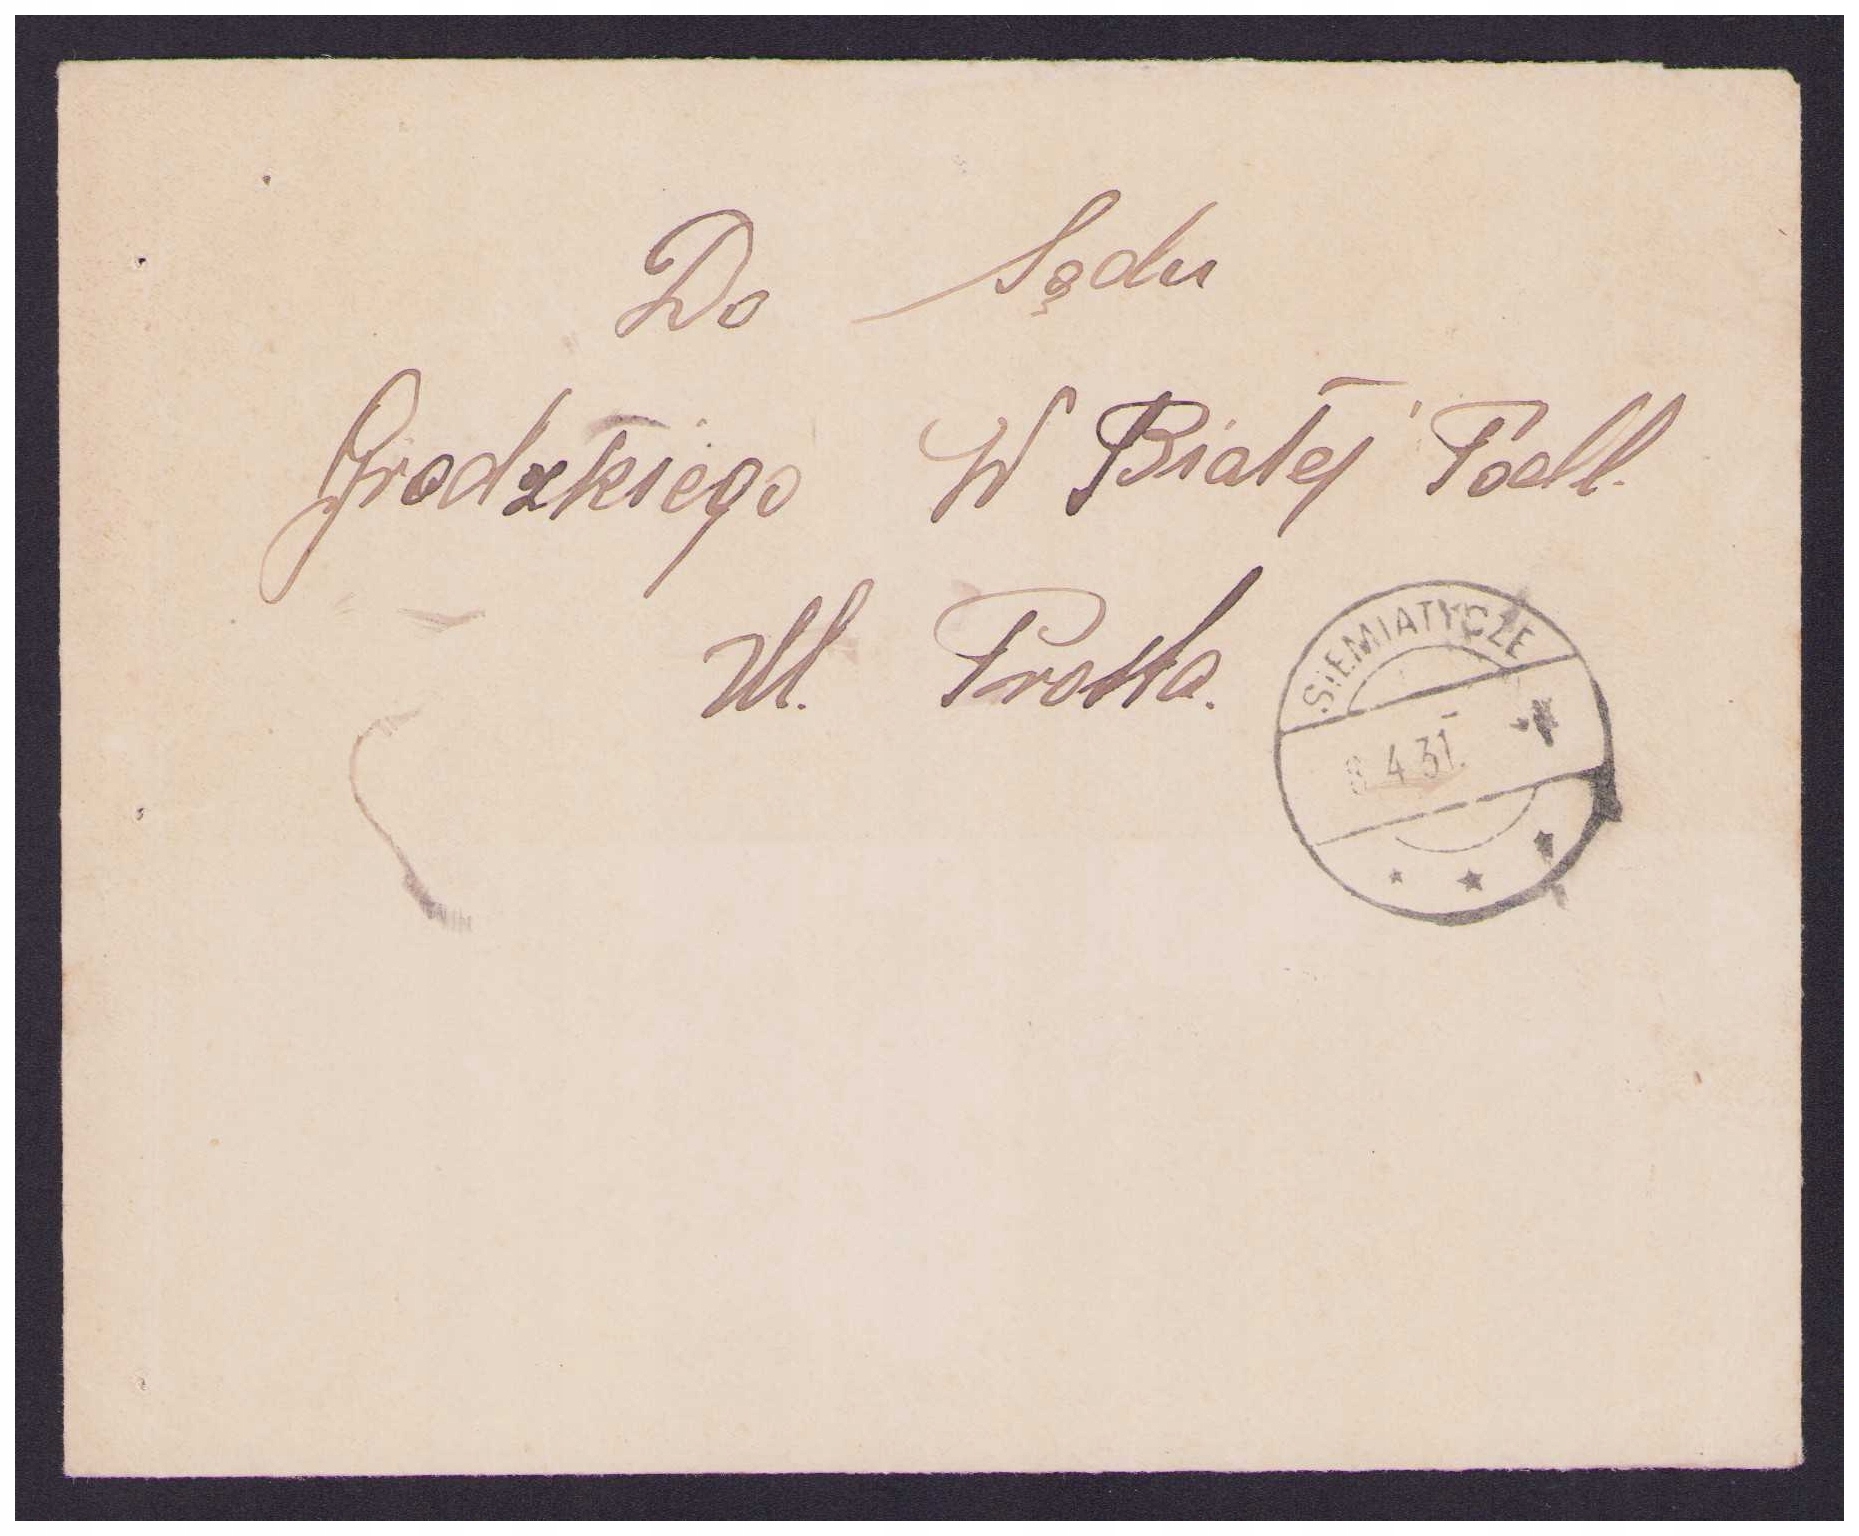 Do Sądu
Grodzkiego W Białej Podl.
Ul. Prosta.
SIEMIATYCZE
8 4 31.